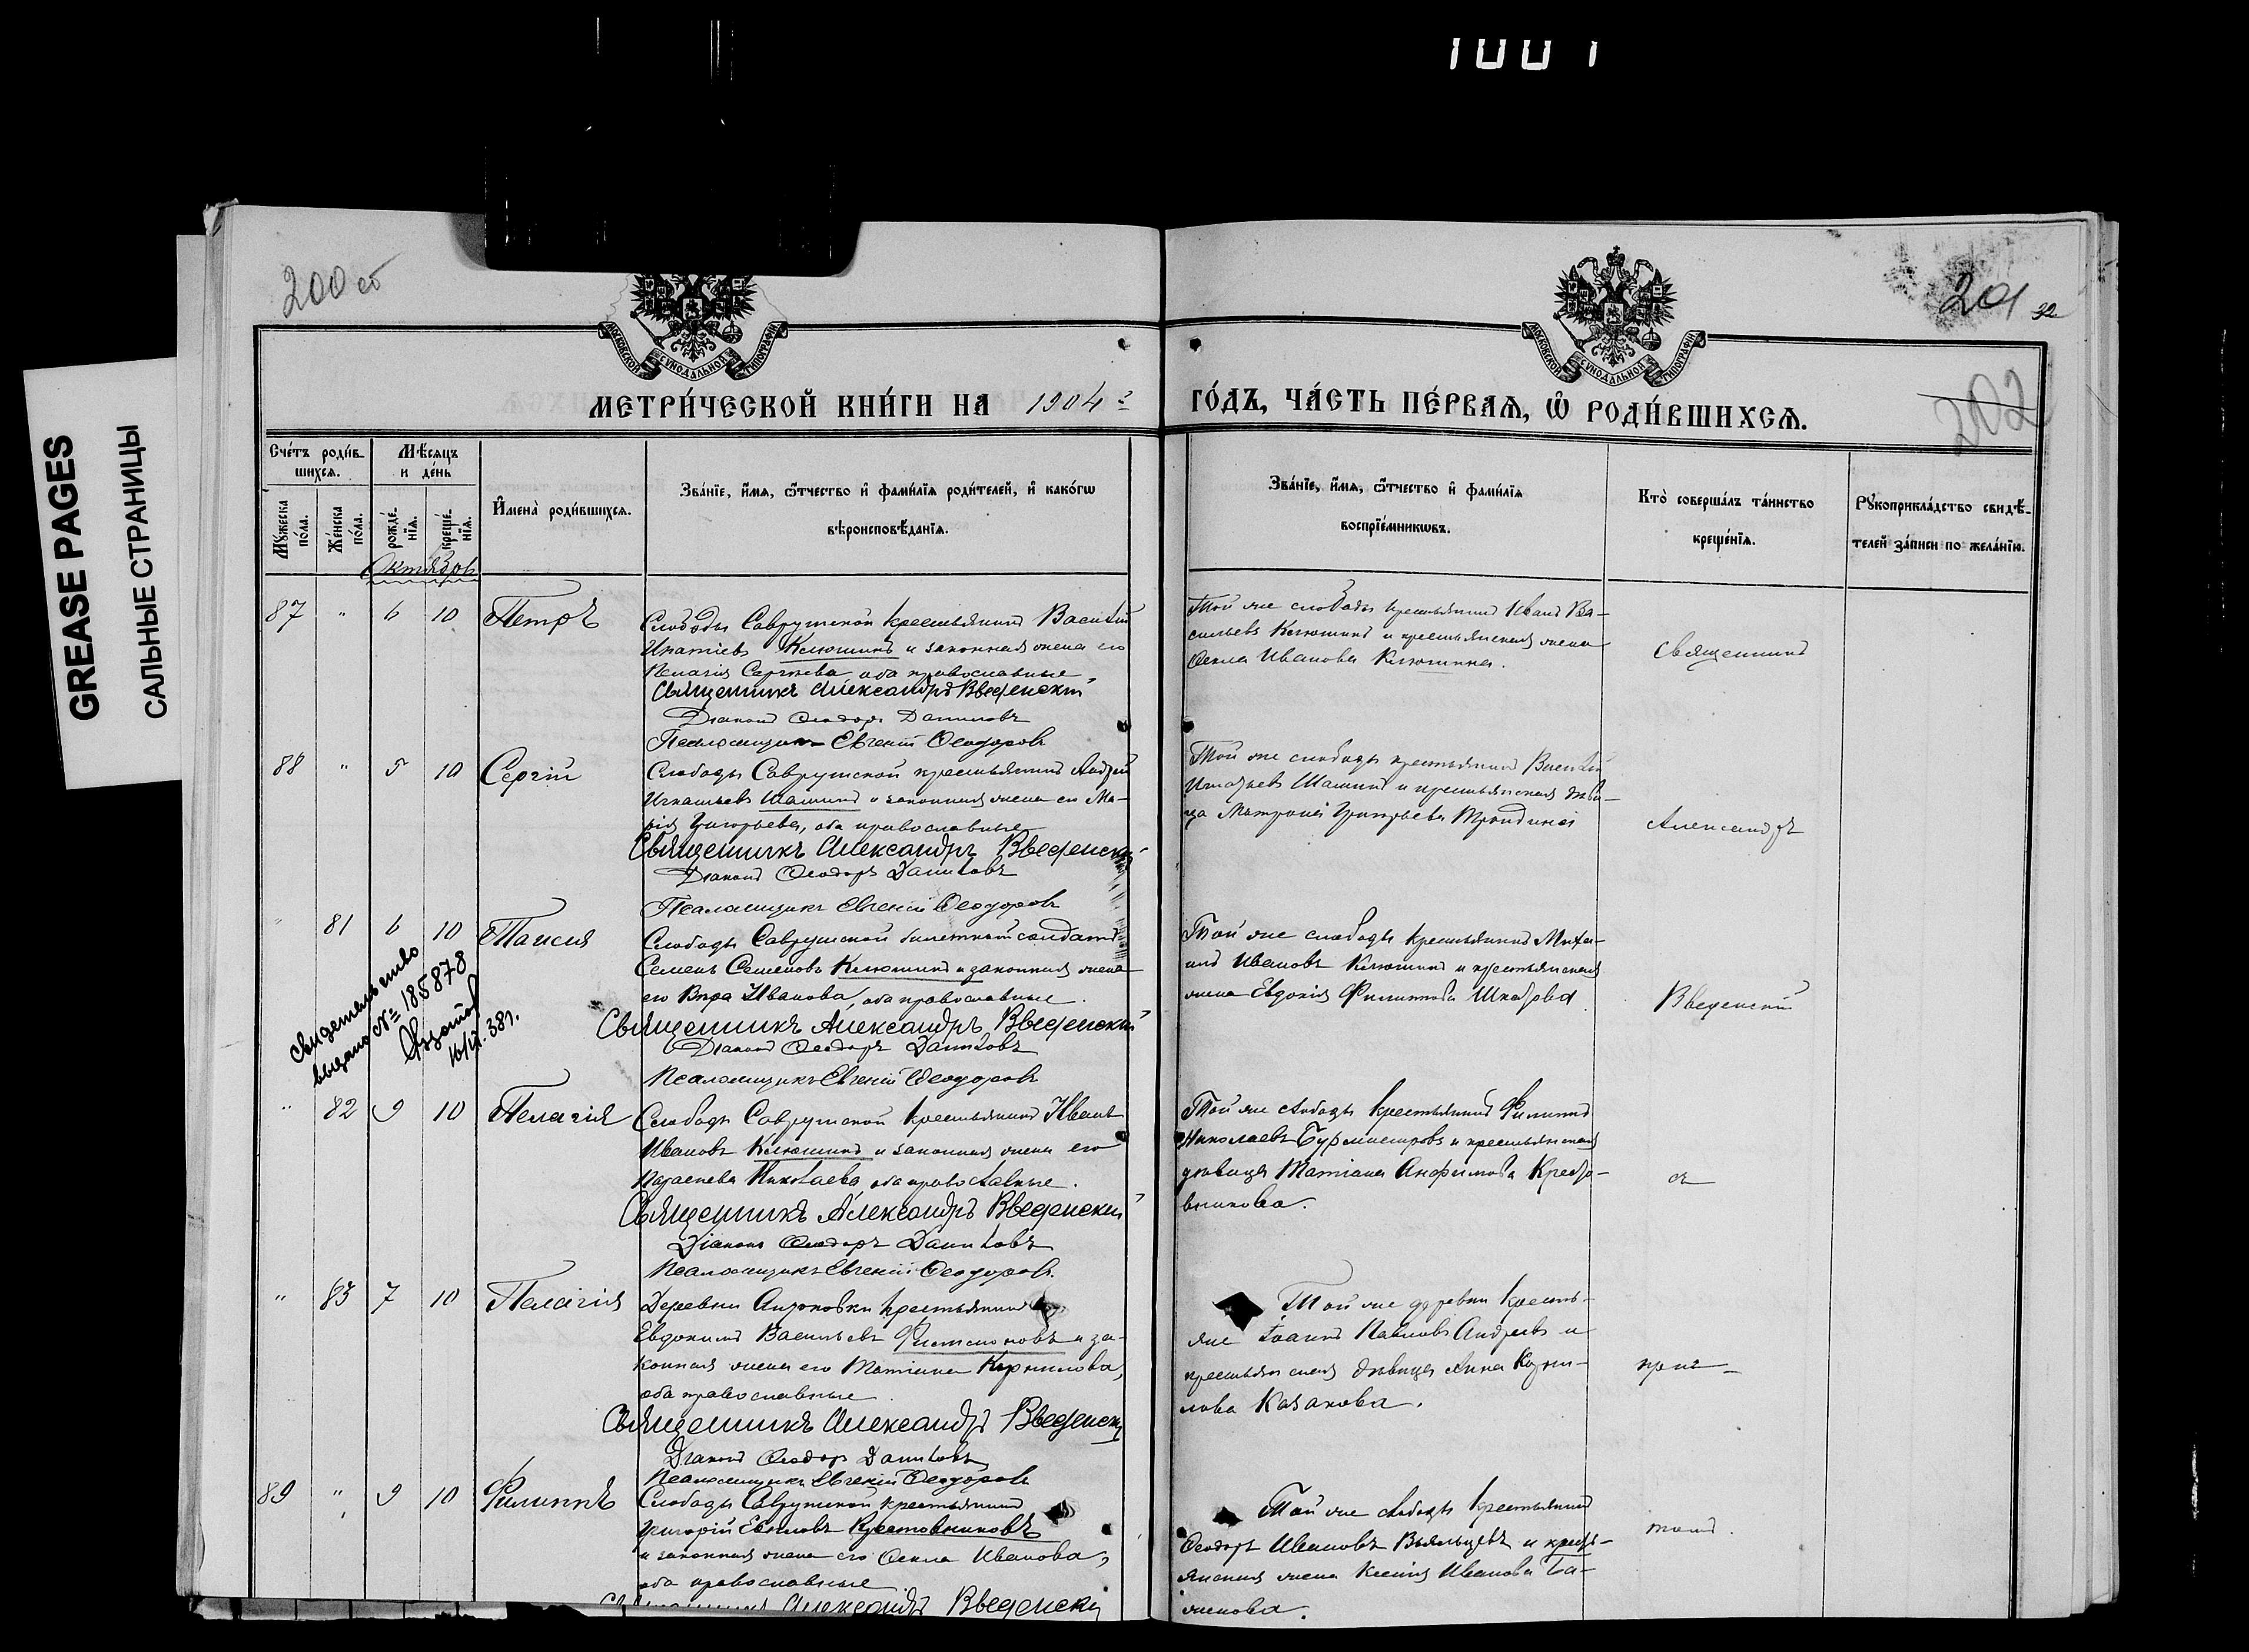 1001
GREASE PAGES
САЛЬНЫЕ СТРАНИЦЫ
200 об
201
32
202
МОСКОВСКОЙ СѴНОДАЛЬНОЙ ТИПОГРАФІИ
МОСКОВСКОЙ СѴНОДАЛЬНОЙ ТИПОГРАФІИ
МЕТРИ́ЧЕСКОЙ КНИ́ГИ НА 1904 г ГО́ДЪ, ЧА́СТЬ ПЕ́РВАѦ, Ѡ҆ РОДИ́ВШИХСѦ.
Сче́тъ роди́в-
шихсѧ.
Мѣ́сѧцъ
и де́нь
Мꙋ́жеска
по́ла.
Же́нска
по́ла.
рожде́-
нїѧ.
креще́-
нїѧ.
И҆мена̀ роди́вшихсѧ.
Зва́нїе, и҆́мѧ, ѻ҆́тчество и҆ фами́лїѧ роди́телей, и҆ како́гѡ
вѣроисповѣ́данїѧ.
Зва́нїе, и҆́мѧ, ѻ҆́тчество и҆ фами́лїѧ
воспрїе́мникѡвъ.
Кто̀ соверша́лъ та́инство
креще́нїѧ.
Рꙋкоприкла́дство свидѣ́-
телей за́писи по жела́нїю.
Октябрь
87 " 6 10 Петръ
Слободы Саврушской крестьянинъ Василій
Игнатіевъ Клюшинъ и законная жена его
Пелагія Сергѣева, оба православные.
Священникъ Александръ Введенскій
Діаконъ Ѳеодоръ Даниловъ
Псаломщикъ Евгеній Ѳеодоровъ
Той же слободы крестьянинъ Иванъ Ва-
сильевъ Клюшинъ и крестьянская жена
Ѳекла Иванова Клюшина.
Священникъ
88 " 5 10 Сергій
Слободы Саврушской крестьянинъ Андрей
Игнатьевъ Шашинъ и законная жена его Ма-
рія Григорьева, оба православные
Священникъ Александръ Введенскій
Діаконъ Ѳеодоръ Даниловъ
Псаломщикъ Евгеній Ѳеодоровъ
Той же слободы крестьянинъ Василій
Игнатьевъ Шашинъ и крестьянская дѣви-
ца Матрона Григорьева
Александръ
" 81 6 10 Таисія
Слободы Саврушской билетный солдатъ
Семенъ Семеновъ Клюшинъ и законная жена
его Вѣра Иванова, оба православные.
Священникъ Александръ Введенскій
Діаконъ Ѳеодоръ Даниловъ
Псаломщикъ Евгеній Ѳеодоровъ
Той же слободы крестьянинъ Миха-
илъ Ивановъ Клюшинъ и крестьянская
жена Евдокія Филиппова
Введенскій
Свидетельство
выдано № 185878
38 г.
" 82 9 10 Пелагія
Слободы Саврушской крестьянинъ Иванъ
Ивановъ Клюшинъ и законная жена его
Параскева Николаева, оба православные.
Священникъ Александръ Введенскій
Діаконъ Ѳеодоръ Даниловъ
Псаломщикъ Евгеній Ѳеодоровъ.
Той же слободы крестьянинъ Филиппъ
Николаевъ Бурмистровъ и крестьянская
дѣвица Татіана Анфимова Кресто-
вникова.
съ
" 83 7 10 Пелагія
Деревни Антоновки крестьянинъ
Евдокимъ Васильевъ Филимоновъ и за-
конная жена его Татіана Корнилова,
оба православные.
Священникъ Александръ Введенскій
Діаконъ Ѳеодоръ Даниловъ
Псаломщикъ Евгеній Ѳеодоровъ
Той же деревни кресть-
яне Іоаннъ Павловъ Андреевъ и
крестьянская дѣвица Анна Корни-
лова Казакова.
прич-
89 " 9 10 Филиппъ
Слободы Саврушской крестьянинъ
Григорій Крестовниковъ
и законная жена его Ѳекла Иванова,
оба православные.
Священникъ Александръ Введенскій
Той же слободы крестьянинъ
Ѳеодоръ Ивановъ Вьяльцевъ и кресть-
янская жена Ксенія Иванова Ба-
женова.
томъ.